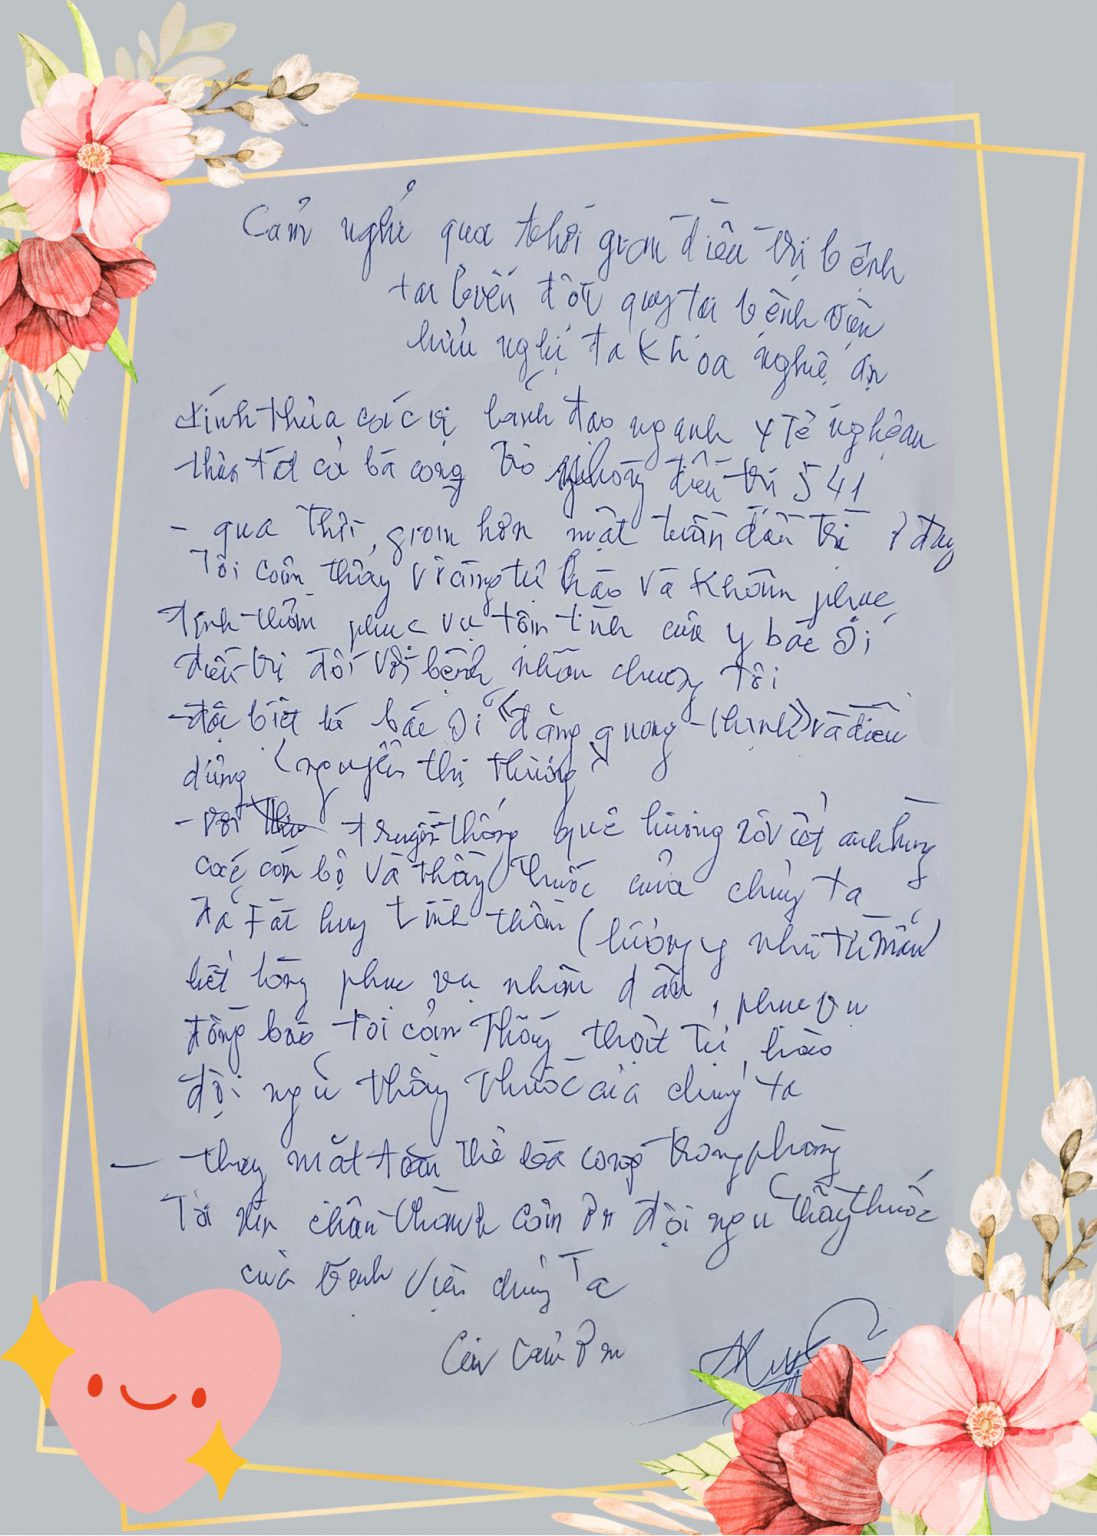 Cảm nghỉ qua thời gian điều trị bệnh
tai biến đột quỵ tại bệnh viện
hửu nghị đa khoa nghệ an
kính thưa các vị lảnh đạo ngành y Tế nghệ an
thân tất cả bà con phòng điều trị 541
- qua thời gian hơn một tuần điều trị ở đây
Tôi cảm thấy vô cùng tự hào và khâm phục
tinh thần phục vụ tận tình của y bác sỉ
điều trị đối với bệnh nhân chúng Tôi
- đặc biệt là bác sỉ "đặng quang thịnh" và điều
dưỡng (nguyễn thị thương)
- với truyền thống quê hương xô viết anh hùng
các cán bộ và thầy thuốc của chúng ta
đã Fát huy tinh thần (lương y như Từ mẩu)
hết lòng phục vụ nhân dân, phục vụ
đồng bào Tôi cảm Thấy thật Tự hào
đội ngủ thầy thuốc của chúng ta
- thay mặt toàn thể bà con trong phòng
Tôi xin chân thành cảm ơn đội ngu thầy thuốc
của bệnh viện chúng Ta
cảm ơn